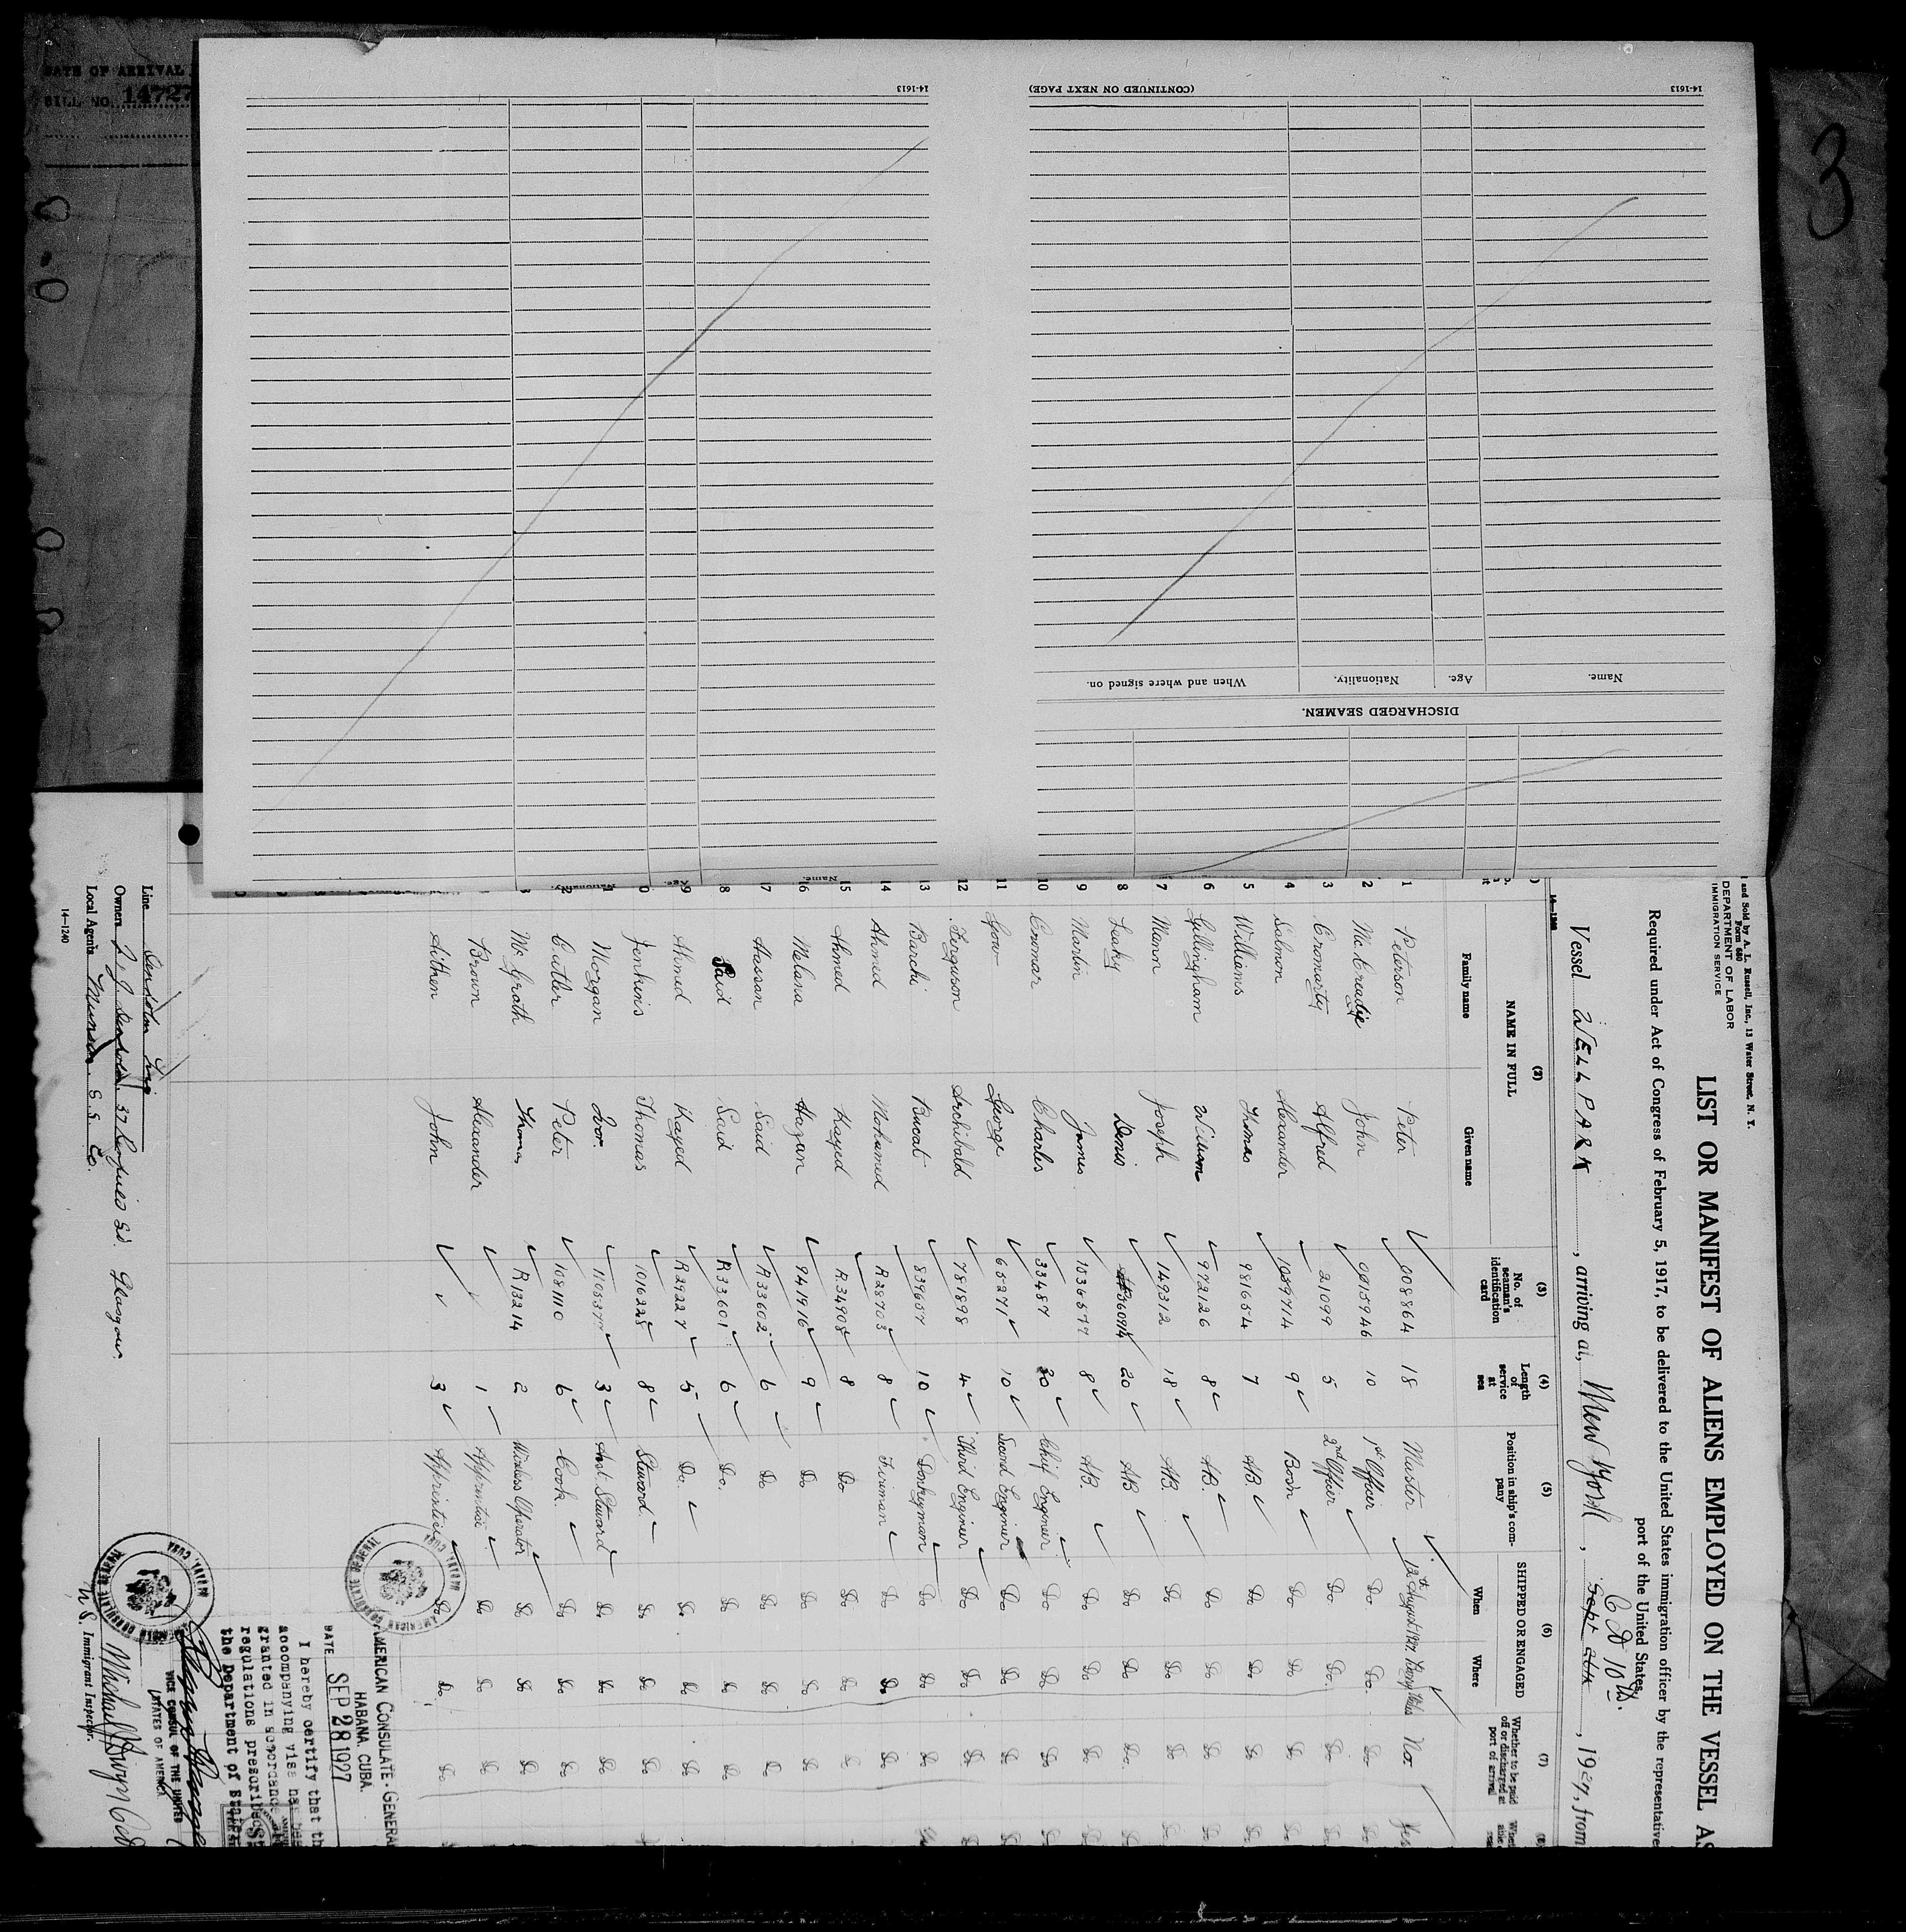 DATE OF ARRIVAL
BILL NO. 14727
3
14-1613
(CONTINUED ON NEXT PAGE)
14-1613
Name.
Age.
Nationality.
When and where signed on.
DISCHARGED SEAMEN.
and Sold by A. L. Russell, Inc., 13 Water Street, N. Y.
Form 680
DEPARTMENT OF LABOR
IMMIGRATION SERVICE
LIST OR MANIFEST OF ALIENS EMPLOYED ON THE VESSEL AS
Required under Act of February 5, 1917, to be delivered to the United States immigration officer by the representative
port of the United States.
Vessel WELLPARK, arriving at, New York, Sept 1927, from
(2) (3) (4) (5) (6) (7) (8)
NAME IN FULL
Family name Given name
No. of seaman's identification card
Length of service at sea
Position in ship's company
SHIPPED OR ENGAGED
When Where
Whether to be paid off or discharged at port of arrival
1 Peterson Peter 008864 18 Master 12th August 1927 Nor Yes
2 McCreadie John 0015946 10 1st Officer Do. Do. Do Do
3 Cromarty Alfred 21099 5 2nd Officer Do. Do. Do Do
4 Salmon Alexander 1059714 9 Bosn Do Do Do Do
5 Williams Thomas 981654 7 A.B. Do Do Do Do
6 Gillingham William 972126 8 A.B. Do Do Do Do
7 Mann Joseph 149312 18 A.B. Do Do Do Do
8 Leaky Denis 20 A.B. Do Do Do. Do
9 Martin James 1036577 8 A.B. Do Do Do Do
10 Charles 33487 30 Chief Engineer Do Do Do Do
11 Gow George 65271 10 Second Engineer Do Do Do Do
12 Ferguson Archibald 781898 4 Third Engineer Do Do Do Do
13 Barchi Bucat 839657 10 Donkeyman Do Do Do
14 Ahmed Mohamed R28703 8 Fireman Do Do Do
15 Ahmed Kayed R34908 8 Do Do Do Do
16 Melana Hazan 941916 9 Do Do Do Do
17 Hassan Said R33602 6 Do Do Do Do
18 Said Said R33601 6 Do. Do Do Do
19 Ahmed Kayed R29227 5 Do. Do Do Do
Jenkins Thomas 1016225 8 Steward Do Do Do
Morgan Ivor 3 Asst Steward Do Do Do
Cutler Peter 1081110 6 Cook Do Do Do
McGrath Thomas R13214 2 Wireless Operator Do Do Do
Brown Alexander 1 Apprentice Do Do Do
Aitken John 3 Apprentice Do Do Do
AMERICAN CONSULATE-GENERAL
HABANA, CUBA.
DATE SEP 28 1927
I hereby certify that th
accompanying visa has been
granted in accordance
regulations prescribed
the Department of State.
VICE CONSUL OF THE UNITED
STATES OF AMERICA
AMERICAN CONSULATE GENERAL
HAVANA, CUBA
U.S. Immigrant Inspector.
Line Denholm Line
Owners J. J. Denholm Ld. Glasgow.
Local Agents Munson S. S. Co.
14—1240